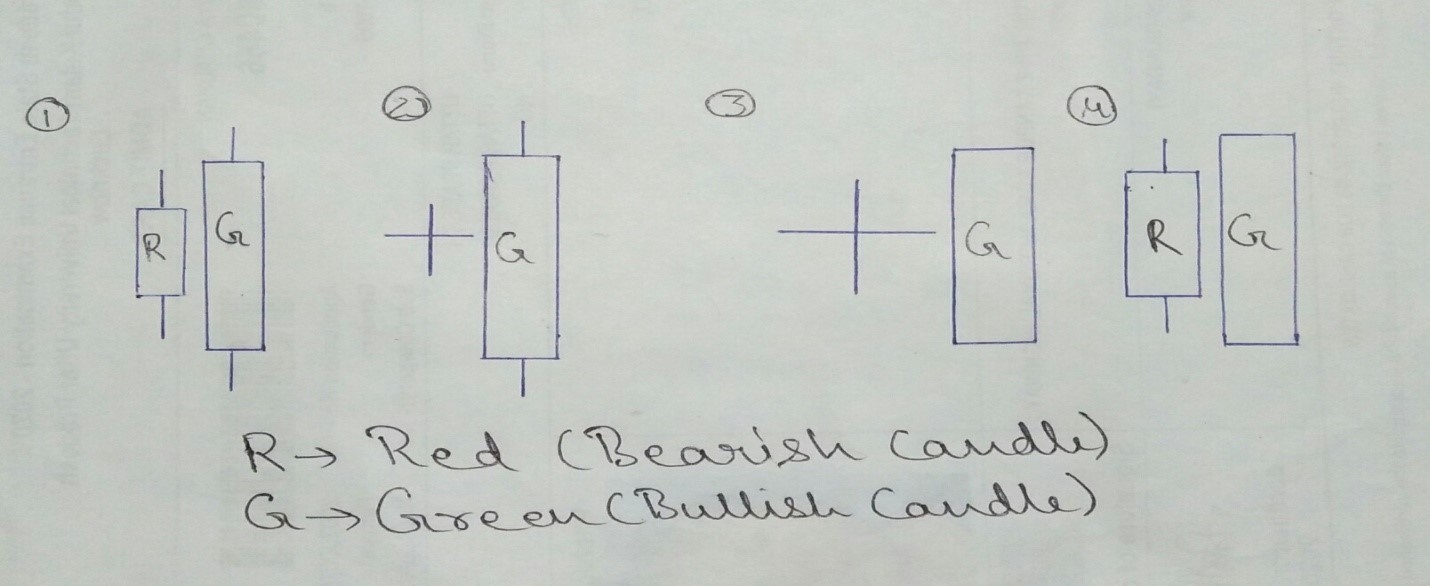 1 2 3 4
R G G G R G
R → Red (Bearish Candle)
G → Green (Bullish Candle)